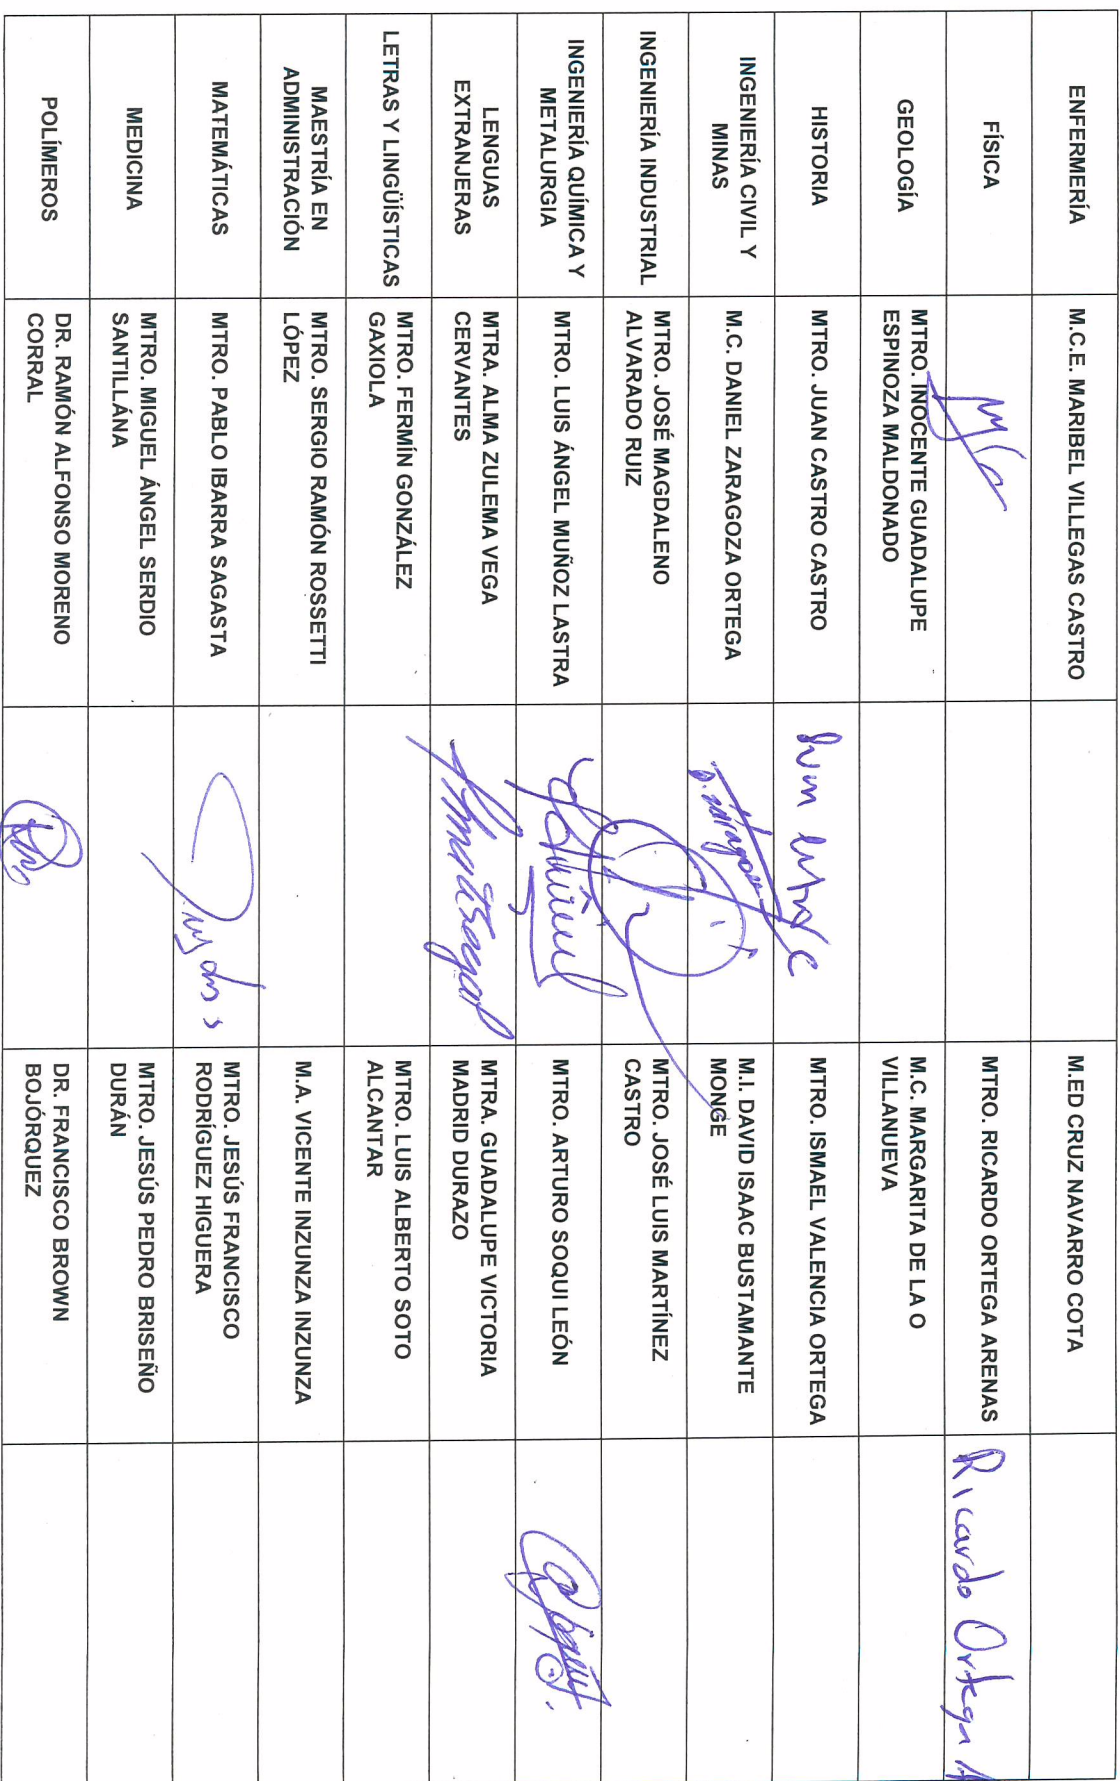 ENFERMERÍA
M.C.E. MARIBEL VILLEGAS CASTRO
M.ED CRUZ NAVARRO COTA
FÍSICA
MTRO. RICARDO ORTEGA ARENAS
Ricardo Ortega A
GEOLOGÍA
MTRO. INOCENTE GUADALUPE
ESPINOZA MALDONADO
M.C. MARGARITA DE LA O
VILLANUEVA
HISTORIA
MTRO. JUAN CASTRO CASTRO
MTRO. ISMAEL VALENCIA ORTEGA
INGENIERÍA CIVIL Y
MINAS
M.C. DANIEL ZARAGOZA ORTEGA
M.I. DAVID ISAAC BUSTAMANTE
MONGE
INGENIERÍA INDUSTRIAL
MTRO. JOSÉ MAGDALENO
ALVARADO RUIZ
MTRO. JOSÉ LUIS MARTÍNEZ
CASTRO
INGENIERÍA QUÍMICA Y
METALURGIA
MTRO. LUIS ÁNGEL MUÑOZ LASTRA
MTRO. ARTURO SOQUI LEÓN
LENGUAS
EXTRANJERAS
MTRA. ALMA ZULEMA VEGA
CERVANTES
MTRA. GUADALUPE VICTORIA
MADRID DURAZO
LETRAS Y LINGÜÍSTICAS
MTRO. FERMÍN GONZÁLEZ
GAXIOLA
MTRO. LUIS ALBERTO SOTO
ALCANTAR
MAESTRÍA EN
ADMINISTRACIÓN
MTRO. SERGIO RAMÓN ROSSETTI
LÓPEZ
M.A. VICENTE INZUNZA INZUNZA
MATEMÁTICAS
MTRO. PABLO IBARRA SAGASTA
MTRO. JESÚS FRANCISCO
RODRÍGUEZ HIGUERA
MEDICINA
MTRO. MIGUEL ÁNGEL SERDIO
SANTILLÁNA
MTRO. JESÚS PEDRO BRISEÑO
DURÁN
POLÍMEROS
DR. RAMÓN ALFONSO MORENO
CORRAL
DR. FRANCISCO BROWN
BOJÓRQUEZ